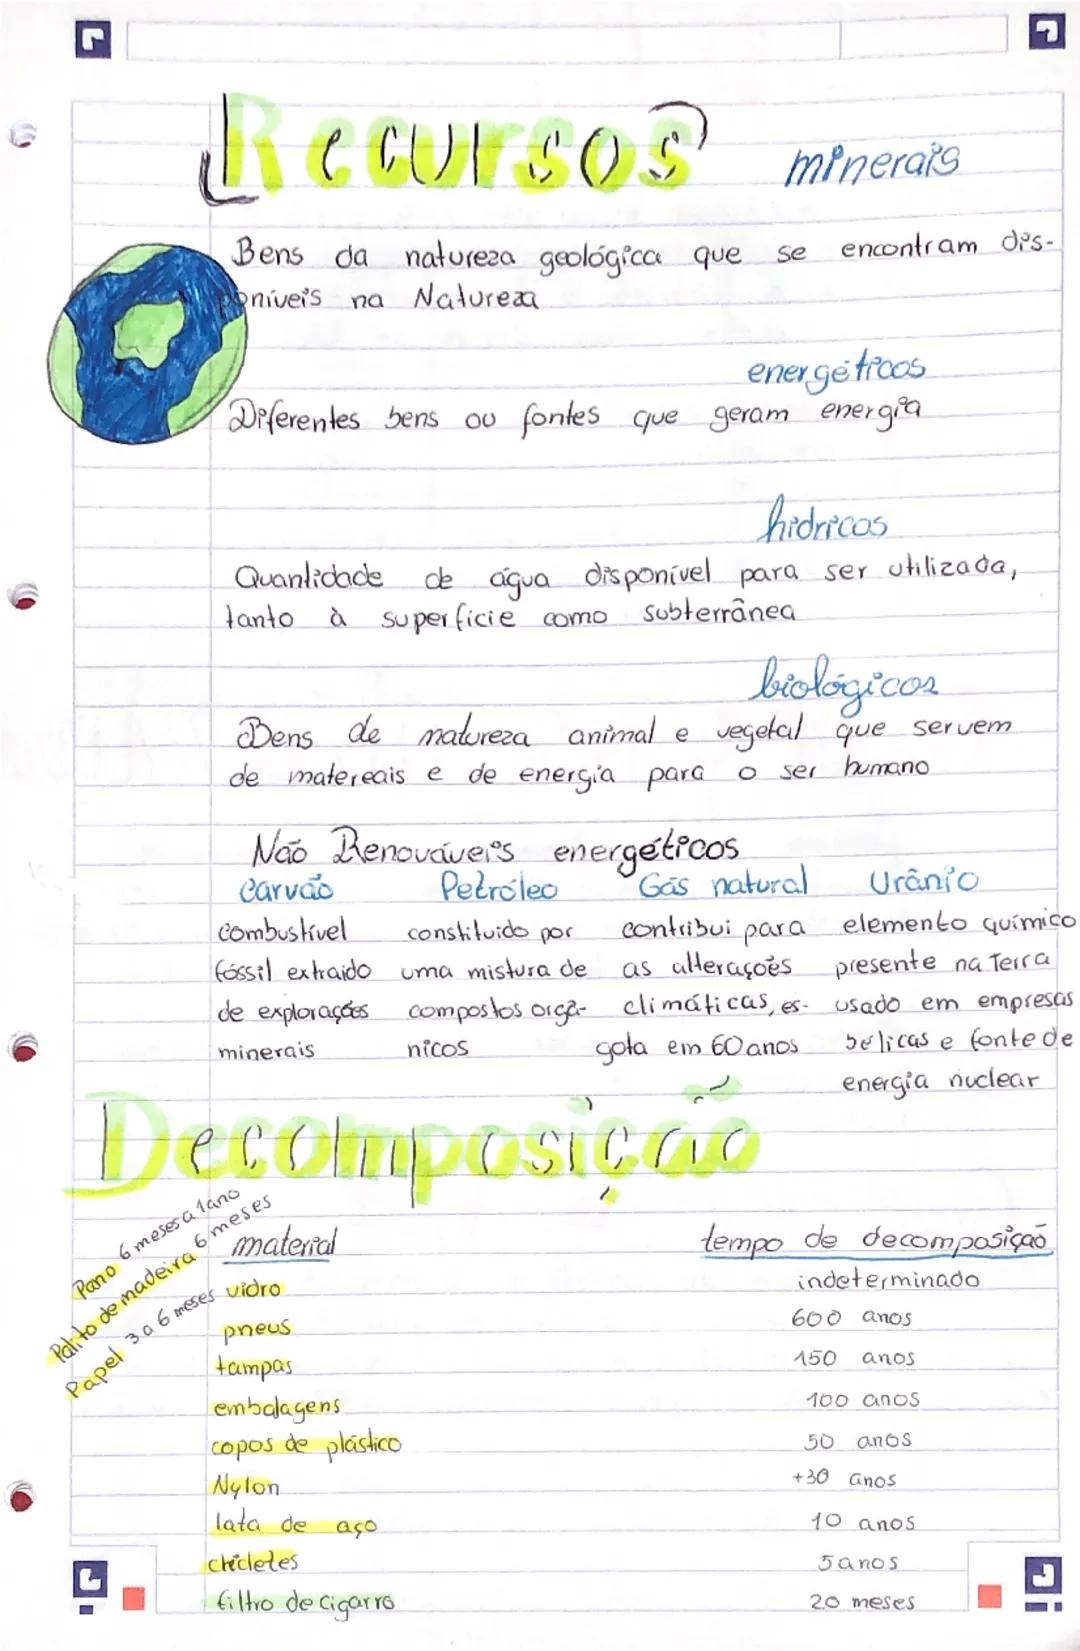 Recursos
minerais
Bens da natureza geológica que se encontram dis-
poníveis na Natureza
energéticos
Diferentes bens ou fontes que geram energia
hidricos
Quantidade de água disponível para ser utilizada,
tanto à superfície como subterrânea
biológicos
Bens de natureza animal e vegetal que servem
de matereais e de energia para o ser humano
Não Renováveis energéticos
Carvão Petróleo Gás natural Urânio
combustível constituido por contribui para elemento químico
fóssil extraido uma mistura de as alterações presente na Terra
de explorações compostos orgâ- climáticas, es- usado em empresas
minerais nicos gota em 60 anos bélicas e fonte de
energia nuclear
Decomposição
Pano 6 meses a 1 ano
Palito de madeira 6 meses
Papel 3 a 6 meses
material tempo de decomposição
vidro indeterminado
pneus 600 anos
tampas 150 anos
embalagens 100 anos
copos de plástico 50 anos
Nylon +30 anos
lata de aço 10 anos
chicletes 5 anos
filtro de cigarro 20 meses